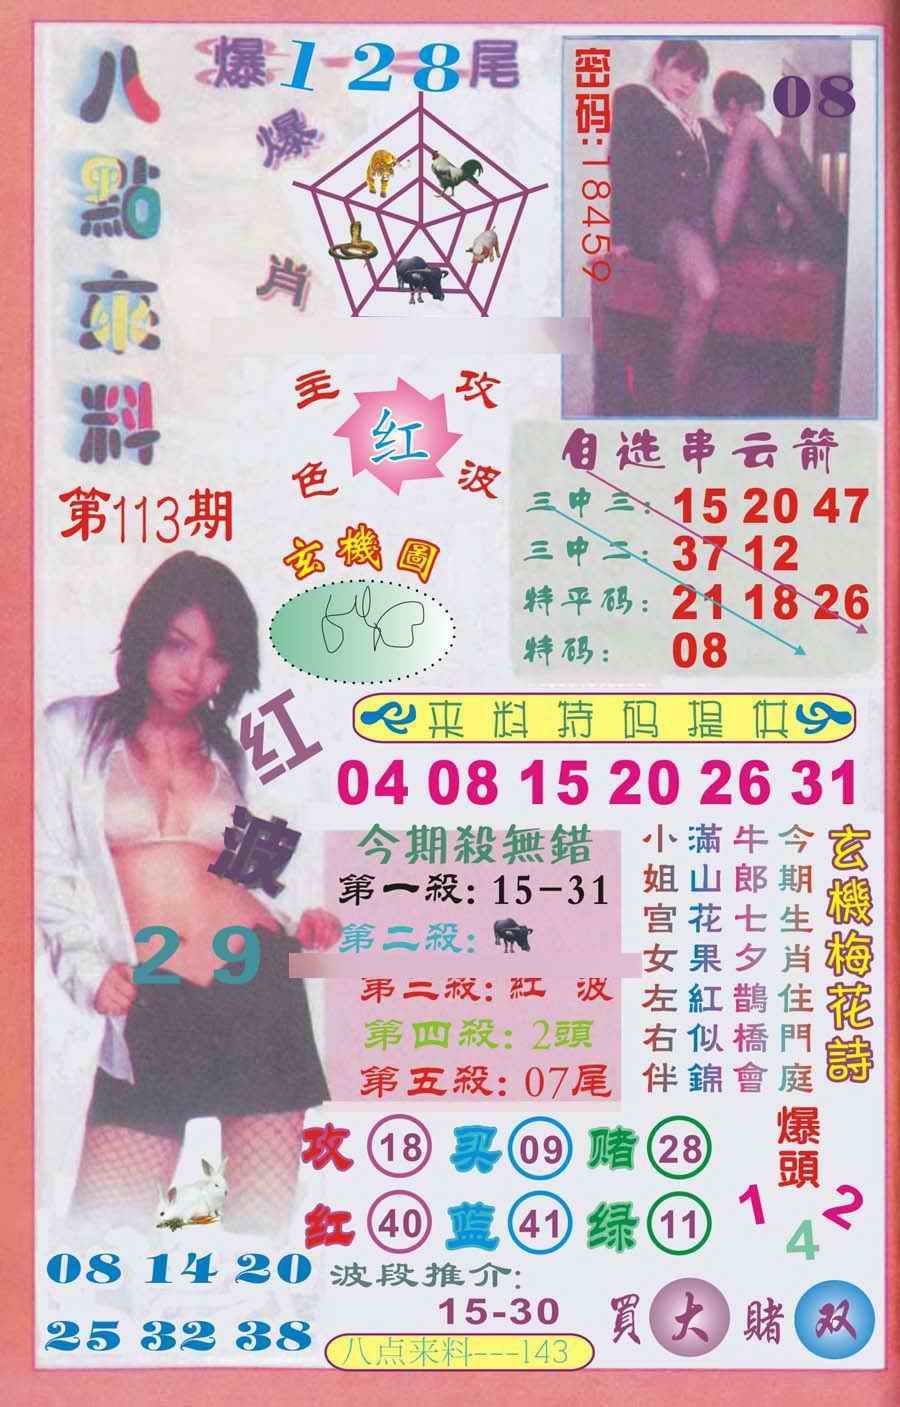 八點來料
爆128尾
爆肖
密码:18459
08
主攻
红
色波
第113期
玄機圖
自选串云箭
三中三: 15 20 47
三中二: 37 12
特平码: 21 18 26
特码: 08
红波
29
来料特码提供
04 08 15 20 26 31
今期殺無錯
第一殺: 15-31
第二殺:
第三殺: 紅 波
第四殺: 2頭
第五殺: 07尾
玄機梅花詩
今期生肖住門庭
牛郎七夕鵲橋會
滿山花果紅似錦
小姐宫女左右伴
攻 18 买 09 赌 28
红 40 蓝 41 绿 11
爆頭
1 2
4
08 14 20
25 32 38
波段推介:
15-30
買大賭双
八点来料---143